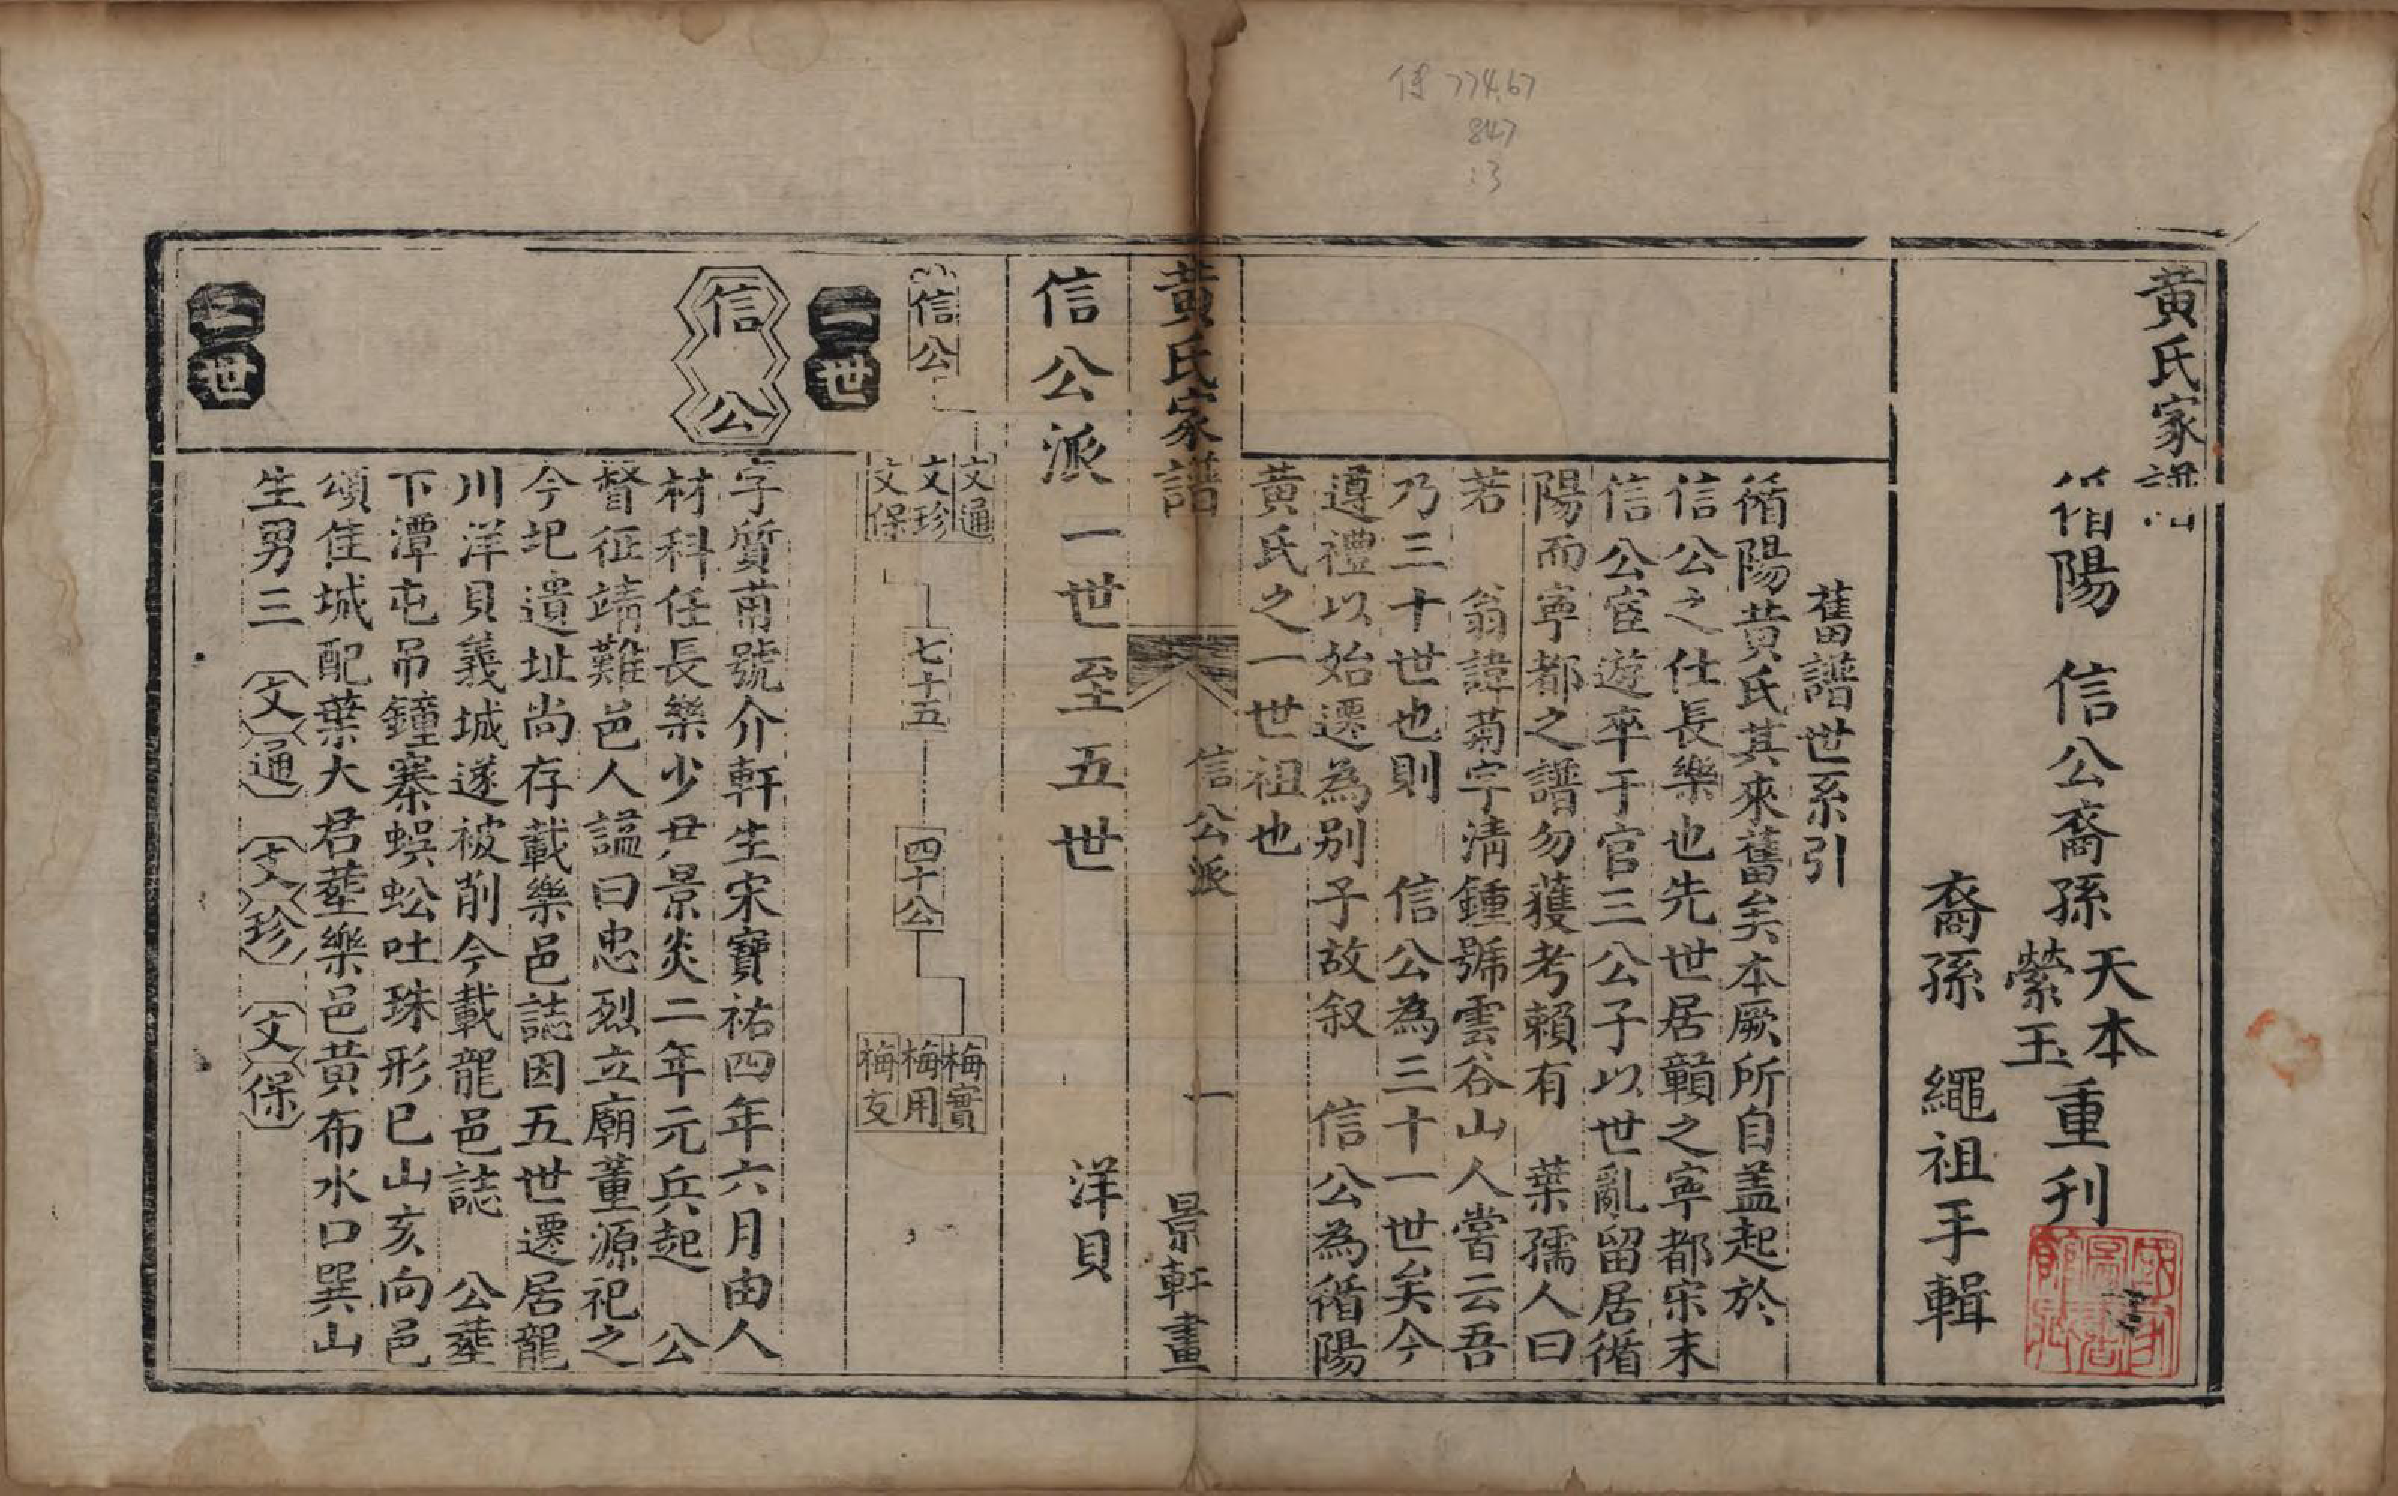 傳 774.67
847
:3
黃氏家譜
循陽 信公裔孫 天本 縈玉 重刊
裔孫 繩祖手輯
舊譜世系引
循陽黃氏其來舊矣本厥所自盖起於
信公之仕長樂也先世居贛之寧都宋末
信公宦遊卒于官三公子以世亂留居循
陽而寧都之譜勿獲考賴有 葉孺人曰
若 翁諱菊字淸鍾號雲谷山人嘗云吾
乃三十世也則 信公為三十一世矣今
遵禮以始遷為别子故叙 信公為循陽
黃氏之一世祖也
黃氏家譜 信公派 一 景軒畫
信公派一世至五世 洋貝
信公
文通
文珍
文保
七十五
四十公
梅實
梅用
梅友
一世
信公
字質甫號介軒生宋寶祐四年六月由人
材科任長樂少尹景炎二年元兵起 公
督征靖難邑人謚曰忠烈立廟董源祀之
今圯遺址尚存載樂邑誌因五世遷居龍
川洋貝義城遂被削今載龍邑誌 公塟
下潭屯吊鐘寨蜈蚣吐珠形巳山亥向邑
頌佳城配葉大君塟樂邑黃布水口巽山
生男三 文通 文珍 文保
二世